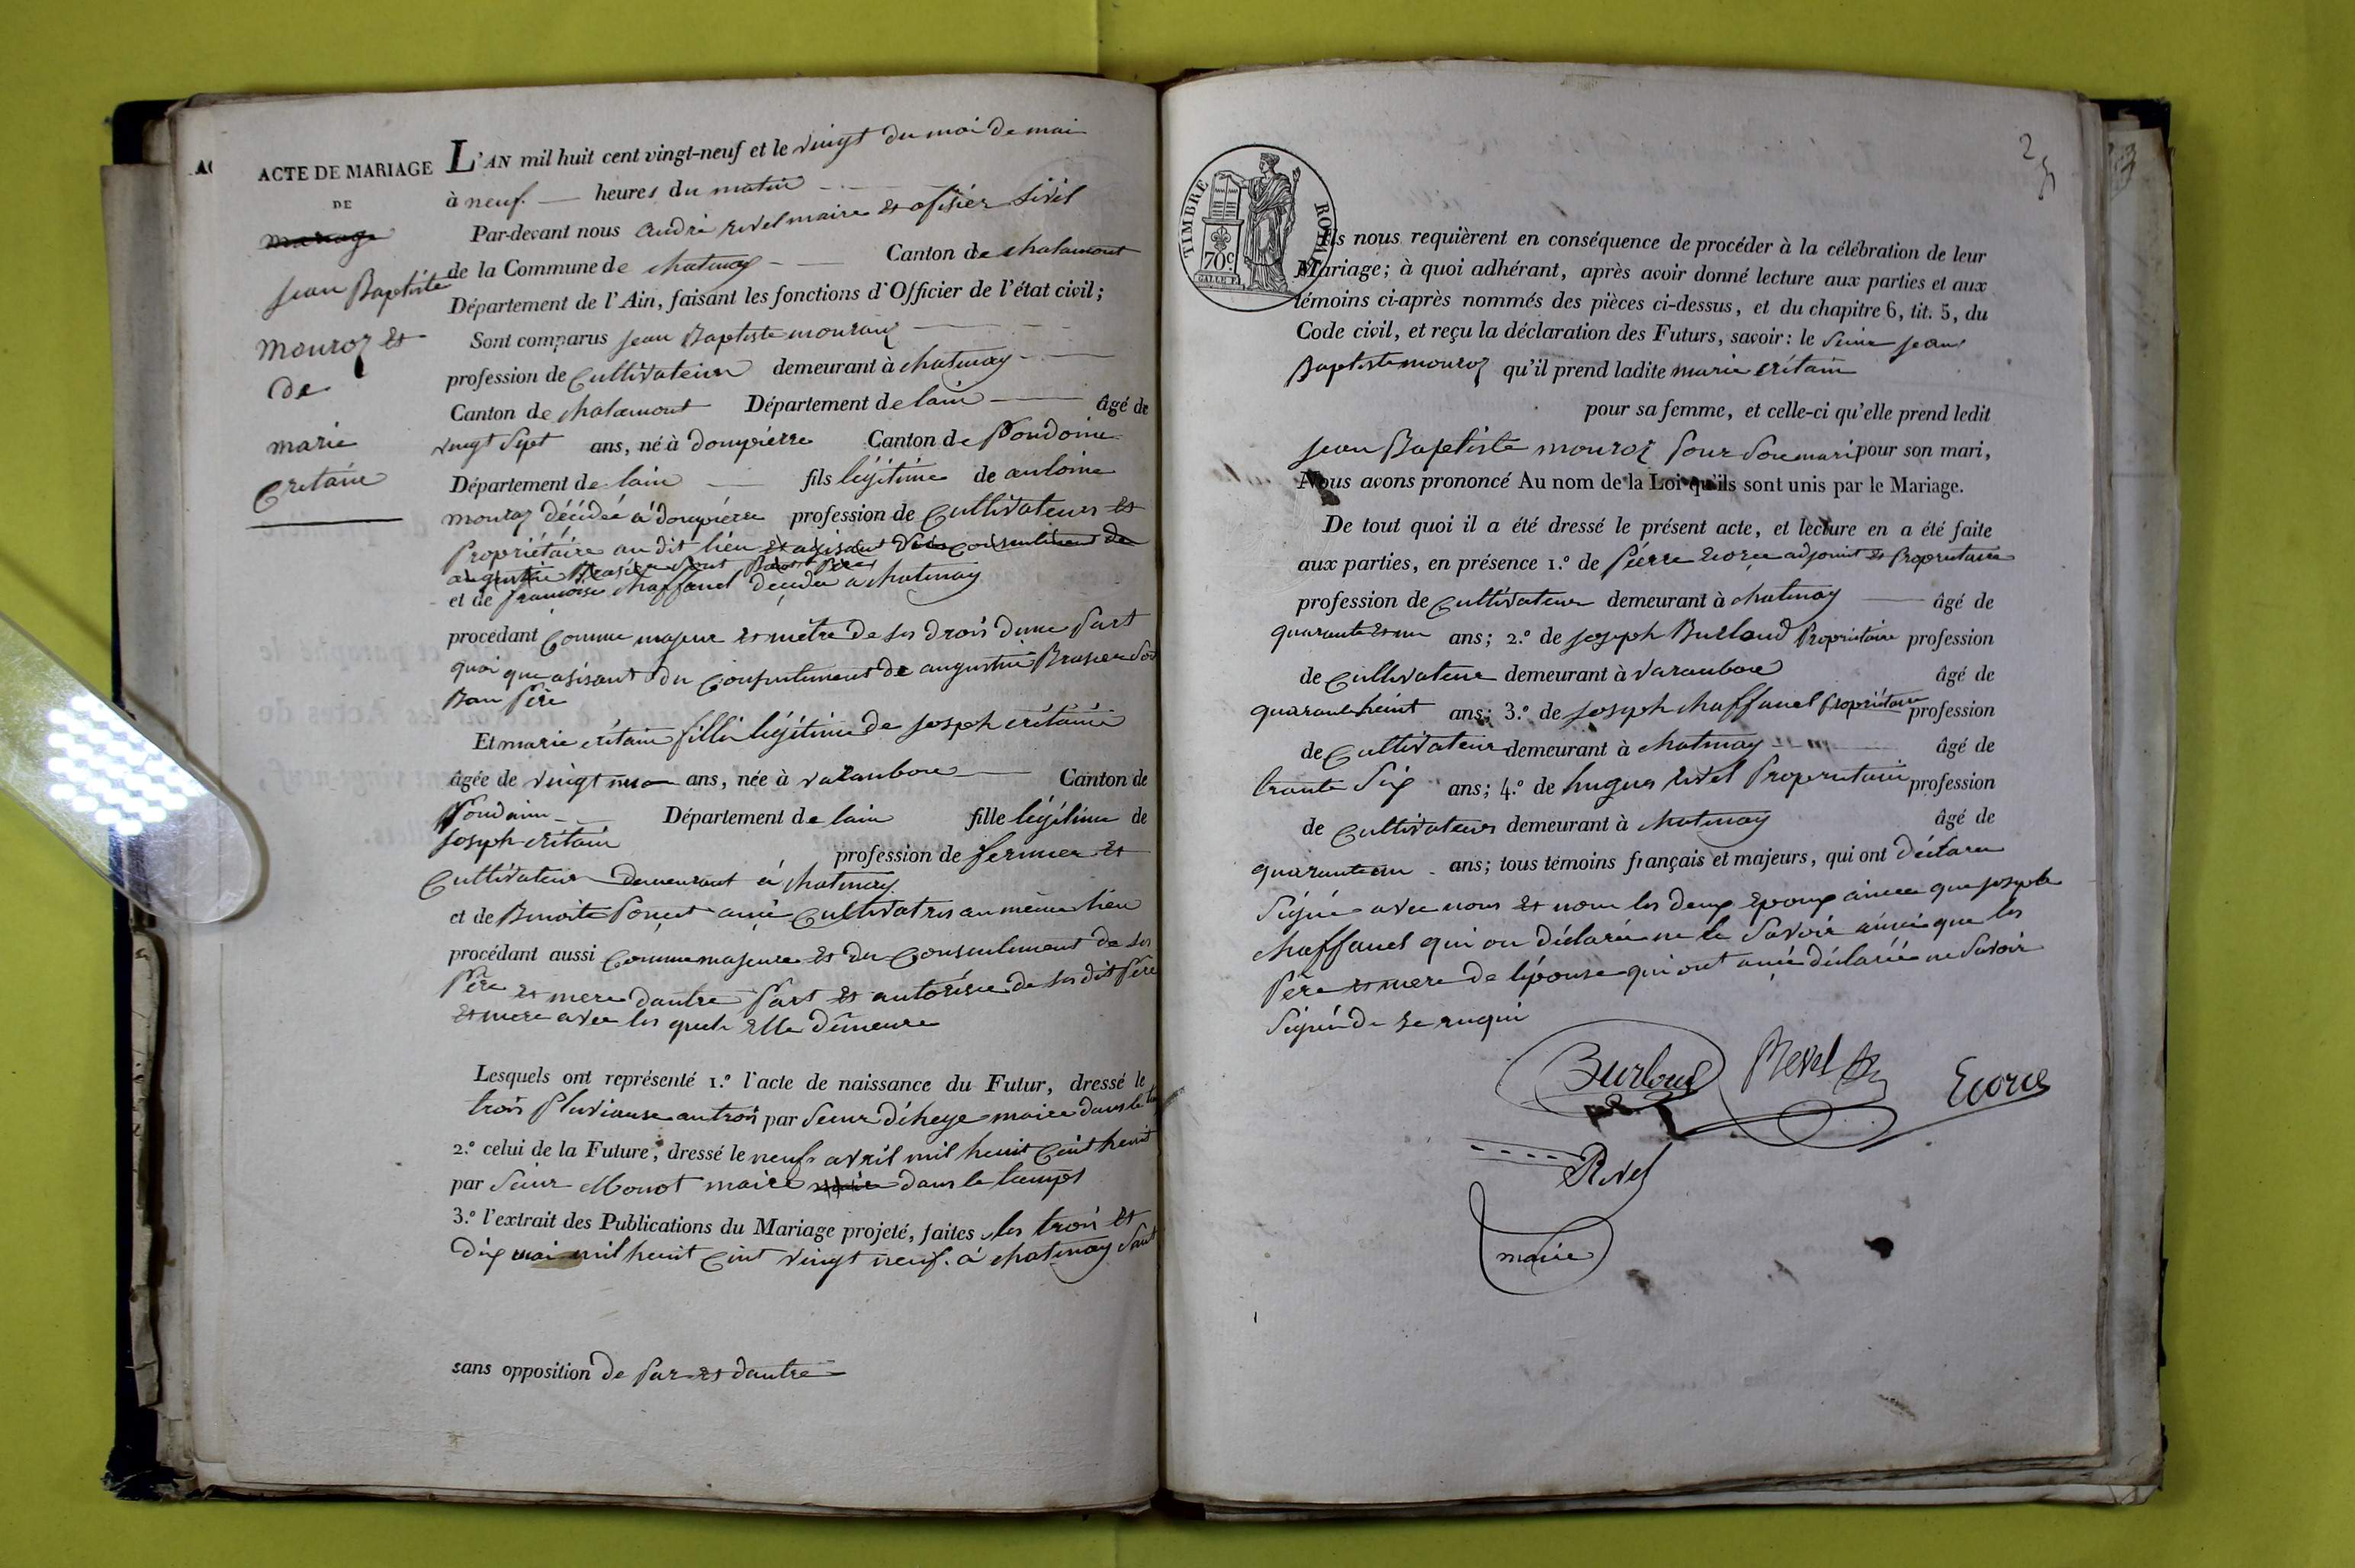 ACTE DE MARIAGE
DE
mariage
jean Baptiste
mouroz et
de
marie
Critain
L'AN mil huit cent vingt-neuf et le vingt du moi de mai
à neuf heures du matin
Par-devant nous andré revel maire et ofisier sivil
de la Commune de chatenay Canton de chalamont
Département de l'Ain, faisant les fonctions d'Officier de l'état civil;
Sont comparus jean Baptiste mouroz
profession de Cultivateur demeurant à chatenay
Canton de chalamont Département de lain âgé de
vingt sept ans, né à dompierre Canton de Pondoin
Département de lain fils légitime de antoine
mouroz décédé a dompierre profession de Cultivateur et
Propriétaire au dit lieu et agisant du consentiment de
augustin Brasier sont Baux Père
et de francoise chaffanel décédée a chatenay
procédant Comme majeur et mètre de ses drois dune part
quoi que agisant du Consentement de augustin Brasier son
Bau Père
Et marie critain fille légitime de joseph critain
âgée de vingt un ans, née à varanbon Canton de
Pondain Département de lain fille légitime de
joseph critain profession de fermier et
Cultivateur demeurant a chatenay
et de Benoite Poncet ausi Cultivatris au même lieu
procédant aussi Comme majeure et du Consentement de ses
Père et mere dautre Part et autorisée de ses dit Père
et mere avec les quels elle demeure
Lesquels ont représenté 1.º l'acte de naissance du Futur, dressé le
trois Pluviause an trois par sieur déheye maire dans le
2.º celui de la Future, dressé le neuf avril mil heuit Cent heuit
par sieur Monot maire maire dans le temps
3.º l'extrait des Publications du Mariage projeté, faites les trois et
dix mai mil heuit Cent vingt neuf. a chatenay
sans opposition de Par et dautre
25
TIMBRE ROYAL
70 C.
Ils nous requièrent en conséquence de procéder à la célébration de leur
Mariage; à quoi adhérant, après avoir donné lecture aux parties et aux
témoins ci-après nommés des pièces ci-dessus, et du chapitre 6, tit. 5, du
Code civil, et reçu la déclaration des Futurs, savoir: le sieur jean
Baptiste mouroz qu'il prend ladite marie critain
pour sa femme, et celle-ci qu'elle prend ledit
jean Baptiste mouroz Pour son mari pour son mari,
Nous avons prononcé Au nom de la Loi qu'ils sont unis par le Mariage.
De tout quoi il a été dressé le présent acte, et lecture en a été faite
aux parties, en présence 1.º de Pierre ecorce adjoint et Propriétaire
profession de Cultivateur demeurant à chatenay âgé de
quarante et un ans; 2.º de joseph Burloud Propriétaire profession
de Cultivateur demeurant à varanbon âgé de
quarante heuit ans; 3.º de joseph chaffanel Propriétaire profession
de Cultivateur demeurant à chatenay âgé de
trante six ans; 4.º de hugues revel Propriétaire profession
de Cultivateur demeurant à chatenay âgé de
quarante ans; tous témoins français et majeurs, qui ont déclaré
Signé avec nous et nom les deux epoux ainci que joseph
chaffanel qui on déclaré ne le savoir ainci que les
Père et mere de lépouse qui ont ausi déclarée ne savoir
Signé de ce requi
Burloud
Revel
Ecorce
Revel
maire